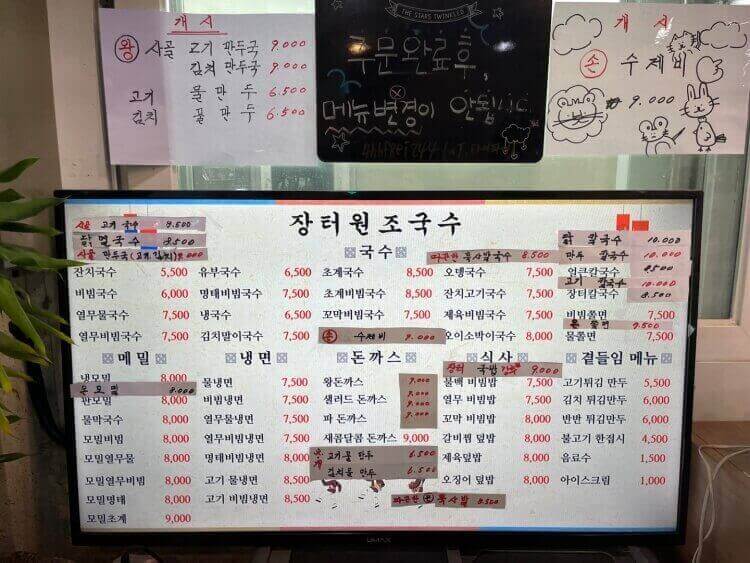 개시
왕 사골 고기 만두국 9.000
김치 만두국 9.000
고기 물만두 6.500
김치 물만두 6.500
THE STARS TWINKLED
주문완료후,
메뉴변경이 안됩니다.
개시
손 수제비
9.000
장터원조국수
사골 고기국수 8.500
닭 멸국수 8.500
사골 만두국(고기,김치) 9.000
국수
따끈한 묵사발국수 8.500
닭 칼국수 10.000
만두 칼국수 10.000
얼큰칼국수 8500
고기 칼국수 10.000
장터칼국수 8.500
잔치국수 5,500
유부국수 6,500
초계국수 8,500
오뎅국수 7,500
비빔국수 6,000
명태비빔국수 7,500
초계비빔국수 8,500
잔치고기국수 7,500
열무물국수 7,500
냉국수 6,500
꼬막비빔국수 8,500
제육비빔국수 7,500
비빔쫄면 7,500
열무비빔국수 7,500
김치말이국수 7,500
손 수제비 9.000
오이소박이국수 8,000
온 쫄면 7.500
물쫄면 7,500
메밀
냉면
돈까스
식사
곁들임 메뉴
장터 국밥 9.000
냉모밀 8,000
온모밀 8.000
판모밀 8,000
물막국수 8,000
모밀비빔 8,000
모밀열무물 8,000
모밀열무비빔 8,000
모밀명태 8,000
모밀초계 9,000
물냉면 7,500
비빔냉면 7,500
열무물냉면 7,500
열무비빔냉면 7,500
명태비빔냉면 8,000
고기 물냉면 8,500
고기 비빔냉면 8,500
왕돈까스 9.000
샐러드 돈까스 9.000
파 돈까스 9.000
새콤달콤 돈까스 9,000
고기물만두 6.500
김치물만두 6.500
물백 비빔밥 7,500
열무 비빔밥 7,500
꼬막 비빔밥 8,500
갈비찜 덮밥 8,500
제육덮밥 8,000
오징어 덮밥 8,000
따끈한 묵사발 8.500
고기튀김 만두 5,500
김치 튀김만두 6,000
반반 튀김만두 6,000
불고기 한접시 4,500
음료수 1,500
아이스크림 1,000
UMAX